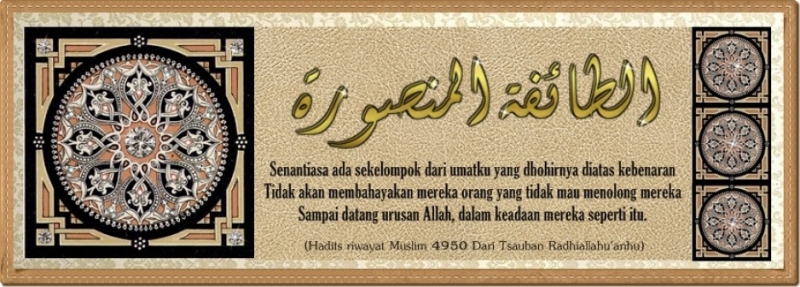 الطائفة المنصورة
Senantiasa ada sekelompok dari umatku yang dhohirnya diatas kebenaran
Tidak akan membahayakan mereka orang yang tidak mau menolong mereka
Sampai datang urusan Allah, dalam keadaan mereka seperti itu.
(Hadits riwayat Muslim 4950 Dari Tsauban Radhiallahu'anhu)